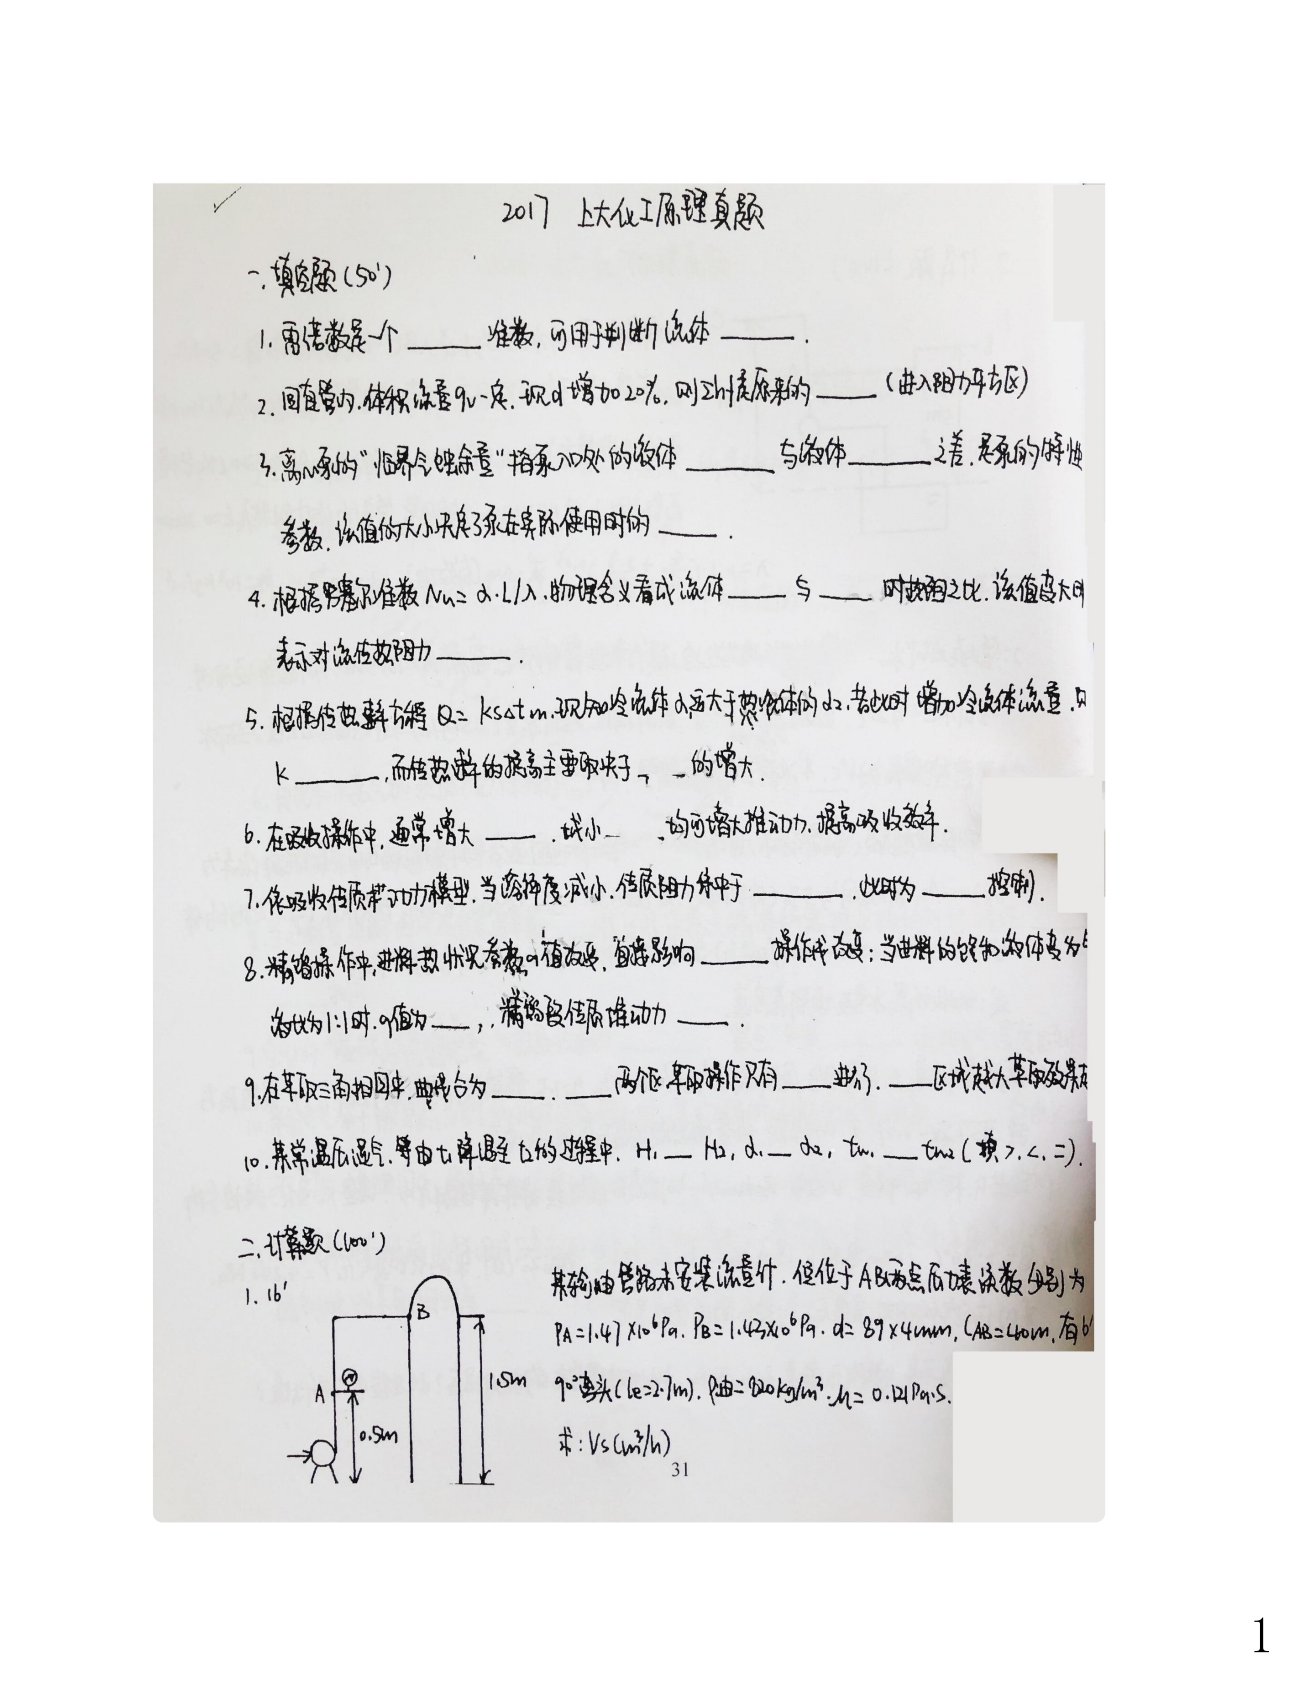 2017 上大化工原理真题
一.填空题(50')
1.雷诺数是一个______准数,可用于判断流体______.
2.圆直管内,体积流量qv一定,现d增加20%,则Σhf是原来的_____(进入阻力平方区)
3.离心泵的"临界气蚀余量"指泵入口处的液体_______与液体_______之差,是泵的特性
参数,该值的大小决定了泵在实际使用时的_____.
4.根据努塞尔准数Nu=α·L/λ,物理含义看成流体_____与_____时热阻之比,该值越大时
表示对流传热阻力______.
5.根据传热速率方程Q=KSΔtm,现知冷流体α1远大于热流体的α2,若此时增加冷流体流量,
K_______,而传热速率的提高主要取决于_ _的增大.
6.在吸收操作中,通常增大_____,减小_ ,均可增大推动力,提高吸收效率.
7.依吸收传质 模型,当溶解度减小,传质阻力集中于________,此时为_____控制.
8.精馏操作中,进料热状况参数q值改变,直接影响______操作线改变;当进料的饱和液体变为
液比为1:1时,q值为____,精馏段传质推动力_____.
9.在萃取三角相图中,曲线分为_____、____两个区,萃取操作只有____进行,____区域越大萃取效果
10.某常温压湿气,等 由t1降温至t2的过程中,H1__H2,α1__α2,tw1___tw2(填>,<,=).
二.计算题(100')
1.16'
某输油管路未安装流量计,但位于AB两点压力表读数分别为
PA=1.47×10⁶Pa, PB=1.43×10⁶Pa. d=89×4mm, LAB=40m,有6
90°弯头(le=2.7m), ρ油=820kg/m³, μ=0.121Pa·s.
求:Vs(m³/h)
B
A
0.5m
1.5m
31
1